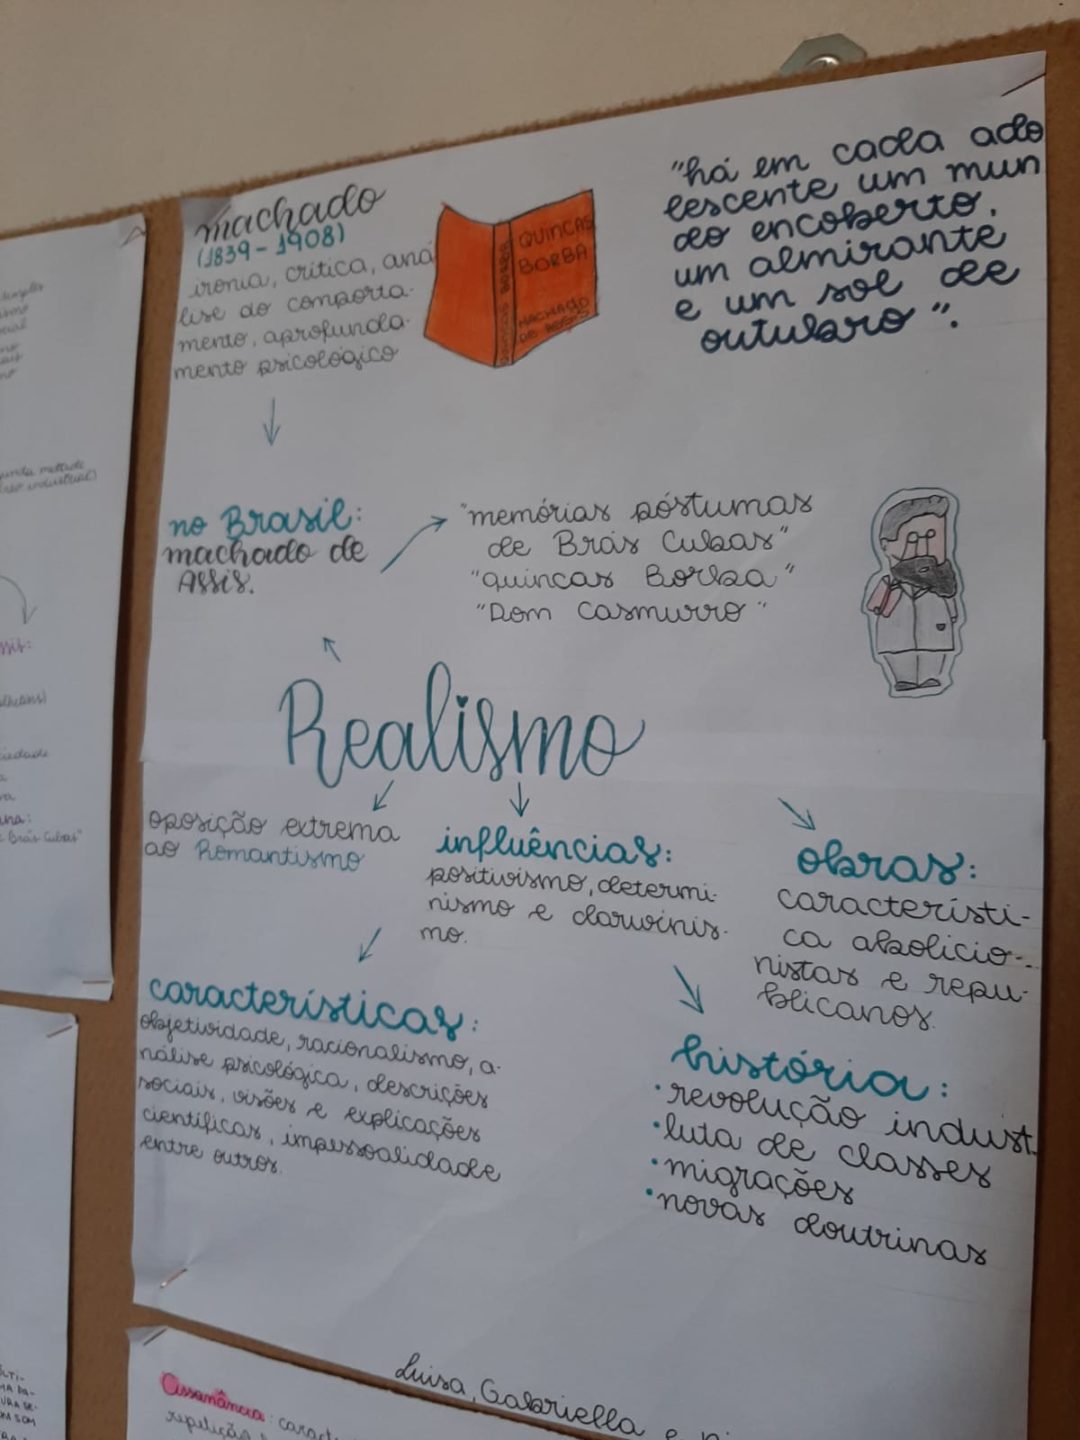 machado
(1839-1908)
ironia, crítica, aná
lise do comporta-
mento, aprofunda-
mento psicológico
QUINCAS BORBA
QUINCAS
BORBA
MACHADO
DE ASSIS
"há em cada ado
lescente um mun
do encoberto,
um almirante
e um sol de
outubro".
no Brasil:
machado de
Assis.
"memórias póstumas
de Brás Cubas"
"Quincas Borba"
"Dom Casmurro"
Realismo
oposição extrema
ao Romantismo
influências:
positivismo, determi-
nismo e darwinis-
mo.
obras:
característi-
ca abolicio-
nistas e repu-
blicanos.
características:
objetividade, racionalismo, a-
nálise psicológica, descrições
sociais, visões e explicações
científicas, impessoalidade
entre outros.
história:
• revolução indust.
• luta de classes
• migrações
• novas doutrinas
Luisa, Gabriella e
Assonância: caract
repetição
unda metade
industrial)
ssis:
lhetins)
iedade
ana:
Brás Cubas"